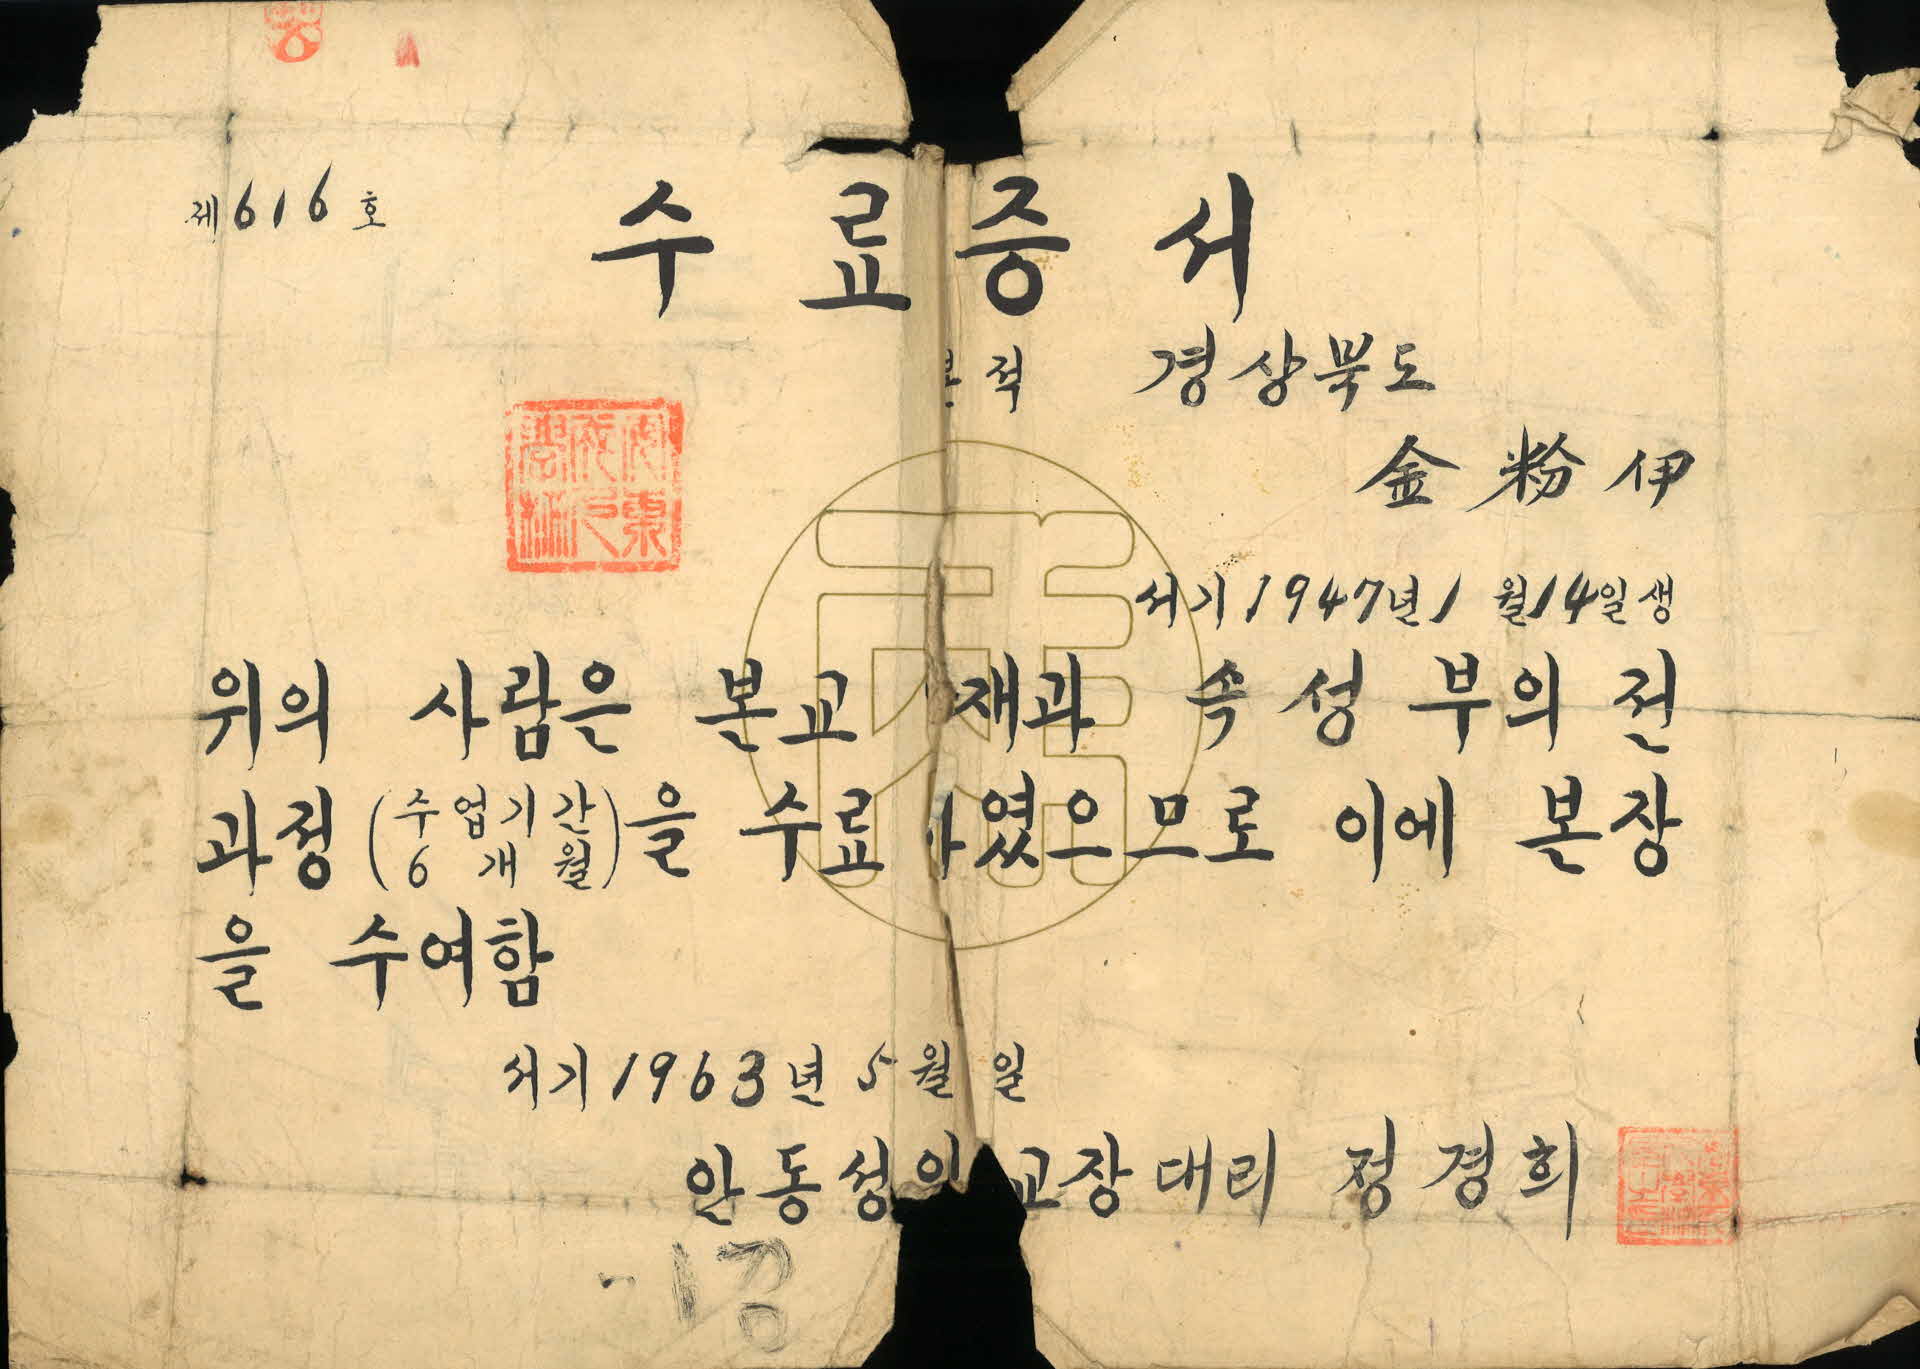 제616호
수료증서
본적 경상북도
金粉伊
서기1947년1월14일생
위의 사람은 본교 재과 속성부의 전
과정(수업기간 6개월)을 수료하였으므로 이에 본장
을 수여함
서기1963년 5월 일
안동성인교장대리 정경희